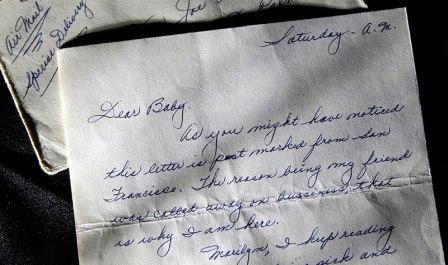 Joe
Air Mail
Special Delivery
Saturday - A.M.
Dear Baby,
As you might have noticed
this letter is post marked from San
Francisco. The reason being my friend
was called away on business, that
is why I am here.
Marilyn, I kept reading
sick and